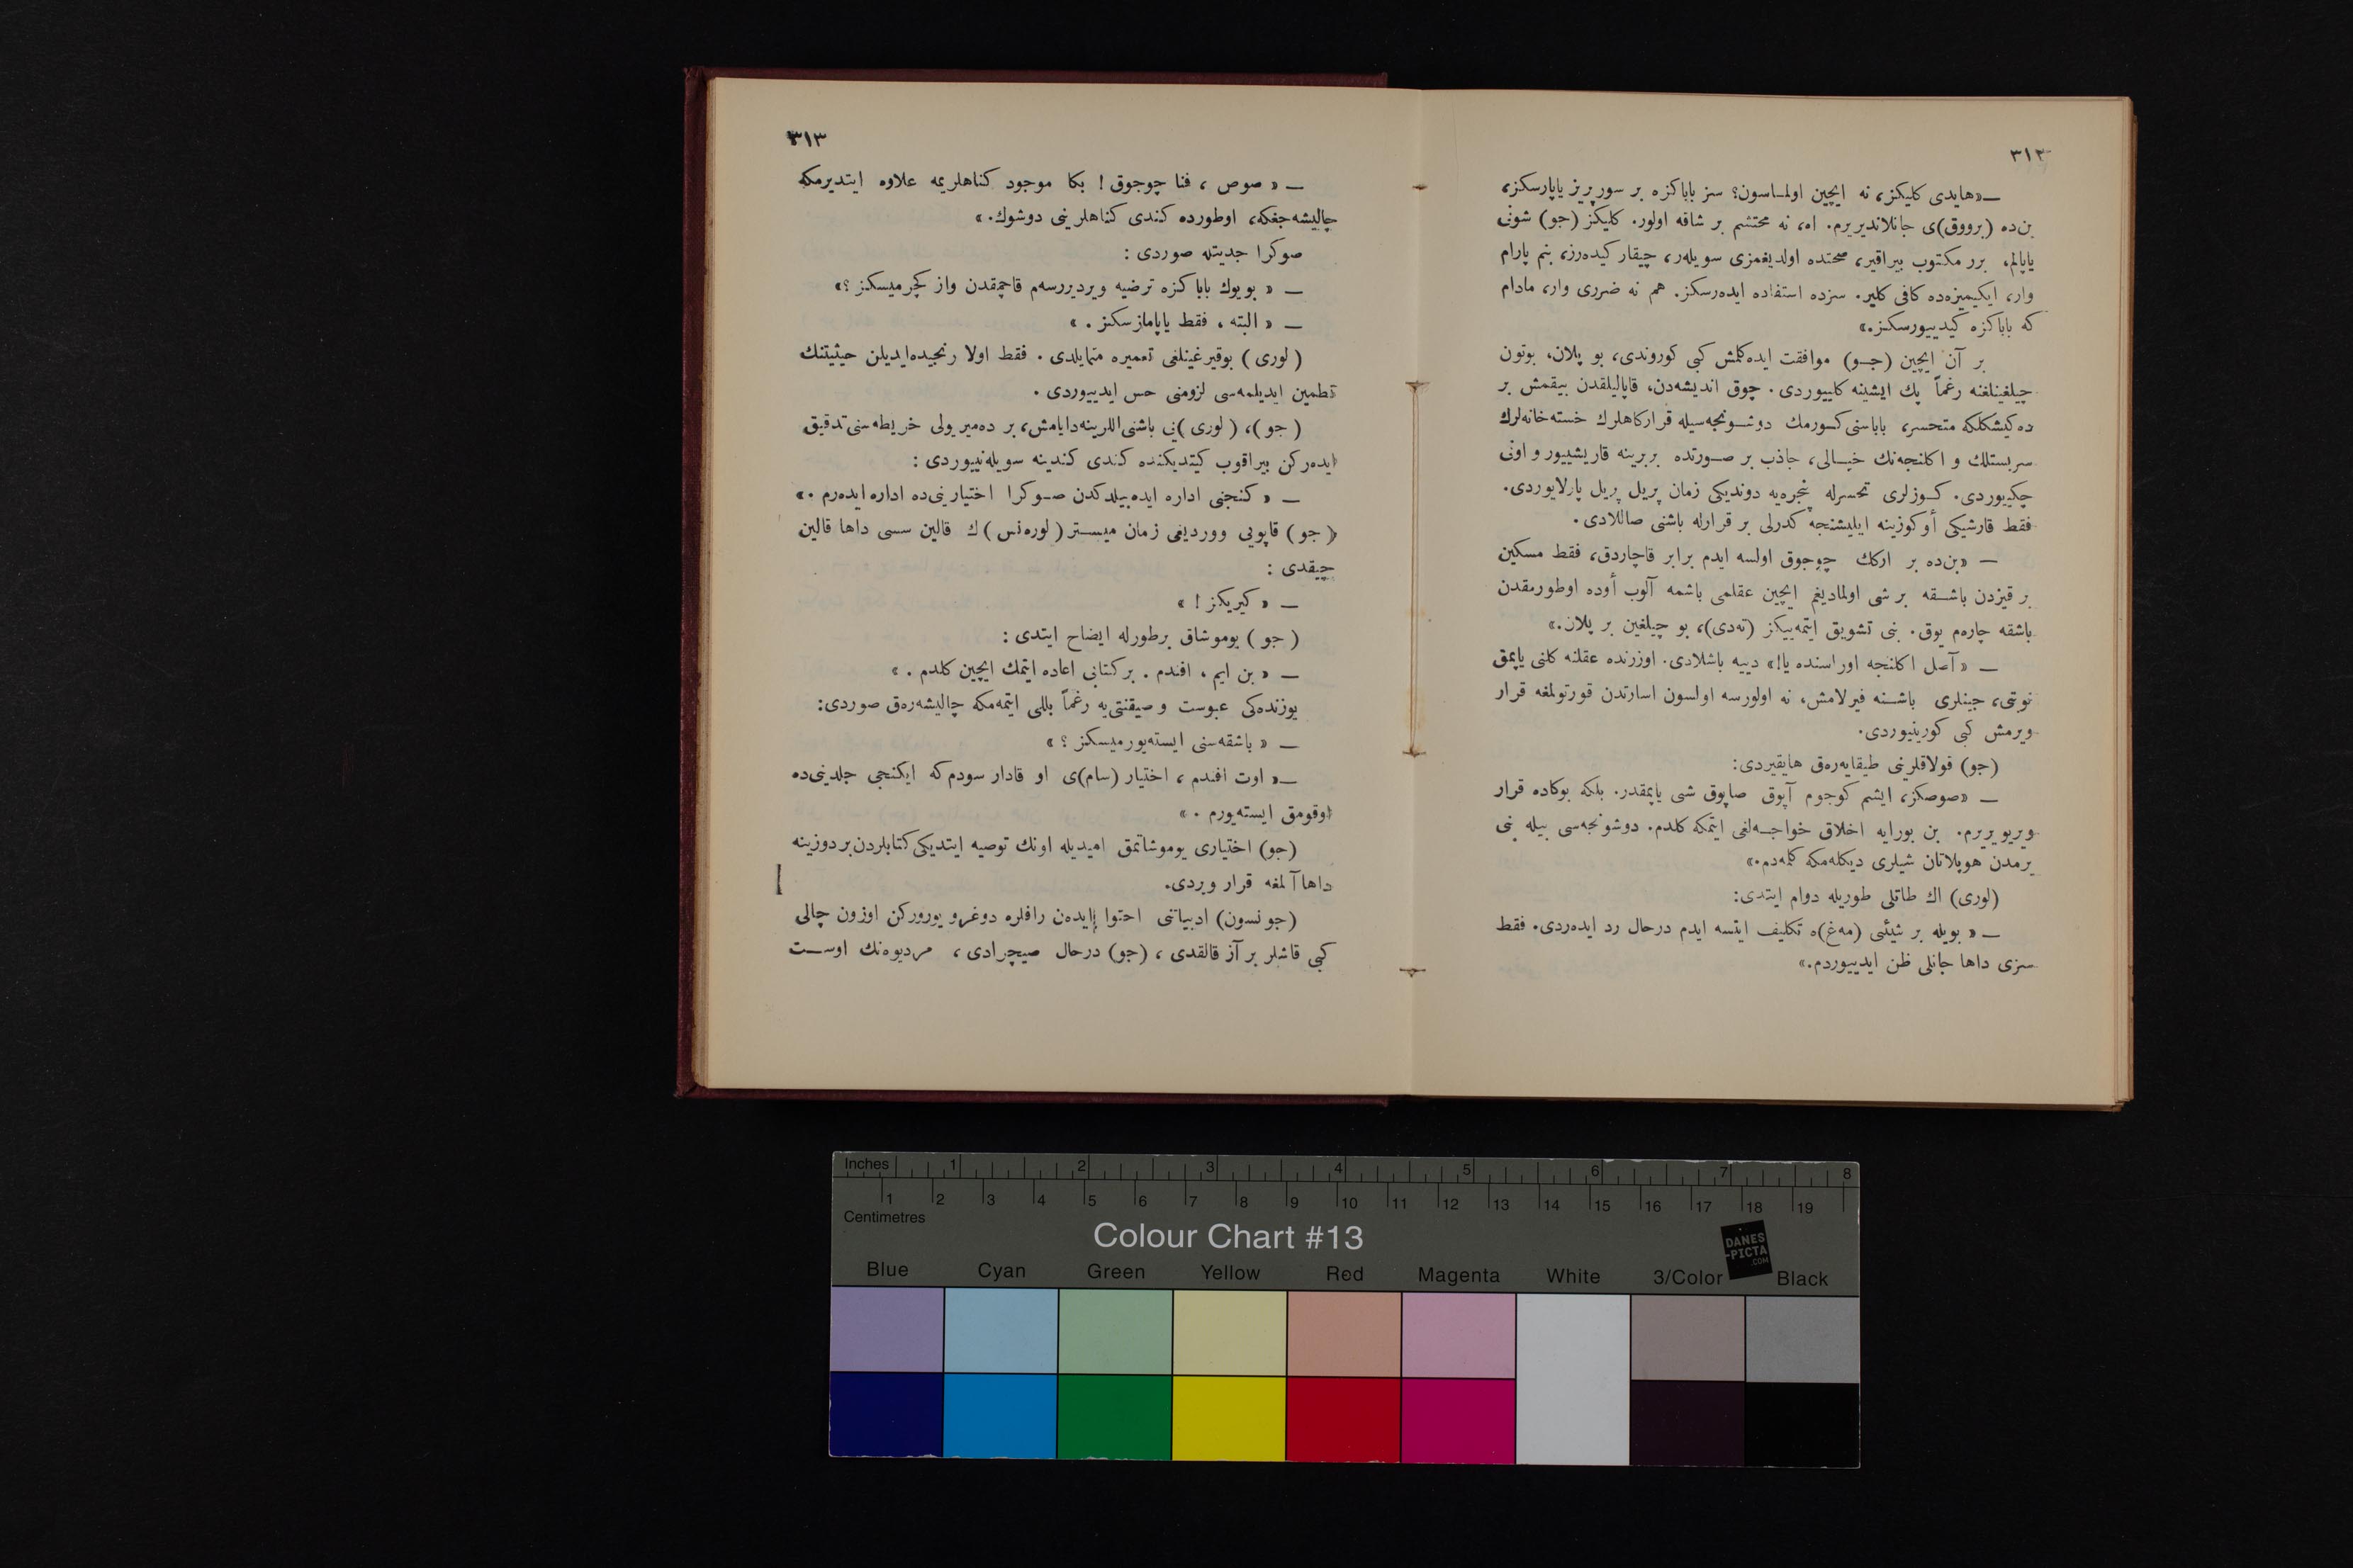 ٣١٢
— «هایدی كلیكز، نه ایچین اولماسون؟ سز باباكزه بر سورپریز یاپارسكز،
بن‌ده (برووق)ی جانلاندیریرم. اه، نه محتشم بر شاقه اولور. كلیكز (جو) شونی
یاپالم، برر مكتوب بیراقیر، صحتده اولدیغمزی سویلەر، چیقار كیدەرز، بنم پارام
وار، ایكیمیزه‌ده كافی كلیر. سزده استفاده ایدەرسكز. هم نه ضرری وار، مادام
كه باباكزه كیدییورسكز.»
بر آن ایچین (جو) موافقت ایده‌كلمش كبی كوروندی، بو پلان، بوتون
چیلغینلغنه رغماً پك ایشینه كلییوردی. چوق اندیشه‌دن، قاپالیلقدن بیقمش بر
ده كیشكلكه متحسر، باباسنی كورمك دوشونجه‌سیله قراركاهلرك خسته‌خانه‌لرك
سربستلك و اكلنجه‌نك خیالی، جاذب بر صورتده بربرینه قاریشییور و اونی
چكییوردی. كوزلری تحسرله پنجره‌یه دوندیكی زمان پریل پریل پارلایوردی.
فقط قارشیكی أو كوزینه ایلیشنجه كدرلی بر قرارله باشنی صاللادی.
— «بن‌ده بر اركك چوجوق اولسه ایدم برابر قاچاردق، فقط مسكین
بر قیزدن باشقه بر شی اولمادیغم ایچین عقلمی باشمه آلوب أوده اوطورمقدن
باشقه چاره‌م یوق. بنی تشویق ایتمه‌ییكز (ته‌دی)، بو چیلغین بر پلان.»
— «آصل اكلنجه اوراسنده یا!» دییه باشلادی. اوزرنده عقلنه كلنی یاپمق
نوبتی، جینلری باشنه فیرلامش، نه اولورسه اولسون اسارتدن قورتولمغه قرار
ویرمش كبی كورینیوردی.
(جو) قولاقلرینی طیقایه‌رەق هایقیردی:
— «صوصكز، ایشم كوجوم آپوق صاپوق شی یاپمقدر. بلكه بوكاده قرار
ویریویریرم. بن بورایه اخلاق خواجه‌لغی ایتمكه كلدم. دوشونجه‌سی بیله بنی
یرمدن هوپلاتان شیلری دیكله‌مكه كلمه‌دم.»
(لوری) اك طاتلی طوریله دوام ایتدی:
— « بویله بر شیئی (مه‌غ)ه تكلیف ایتسه ایدم درحال رد ایده‌ردی. فقط
سزی داها جانلی ظن ایدییوردم.»
٣١٣
— « صوص ، فنا چوجوق ! بكا موجود كناهلریمه علاوه ایتدیرمكه
چالیشه‌جغكه، اوطورده كندی كناهلرینی دوشوك. »
صوكرا جدیتله صوردی :
— « بویوك باباكزه ترضیه ویردیررسه‌م قاچمقدن واز كچرمیسكز ؟»
— « البته ، فقط یاپامازسكز . »
(لوری) بوقیرغینلغی تعمیره متمایلدی . فقط اولا رنجیده‌ایدیلن حیثیتنك
تطمین ایدیلمه‌سی لزومنی حس ایدییوردی .
(جو)، (لوری)نی باشنی‌اللرینه‌دایامش، بر ده‌میر یولی خریطه‌سنی‌تدقیق
ایده‌ركن بیراقوب كیتدیكنده كندی كندینه سویله‌نییوردی :
— « كنجی اداره ایده‌بیلدكدن صوكرا اختیارنی‌ده اداره‌ایده‌رم . »
(جو) قاپویی ووردیغی زمان میستر (لوره‌نس)ك قالین سسی داها قالین
چیقدی :
— « كیریكز ! »
(جو) یوموشاق برطورله ایضاح ایتدی :
— « بن ایم ، افندم . بر كتابی اعاده ایتمك ایچین كلدم . »
یوزنده‌كی عبوست و صیقنتی‌یه رغماً بللی ایتمه‌مكه چالیشه‌رەق صوردی:
— « باشقه‌سنی ایسته‌یورمیسكز ؟ »
— « اوت افندم ، اختیار (سام)ی او قادار سودم‌كه ایكنجی جلدینی‌ده
اوقومق ایسته‌یورم . »
(جو) اختیاری یوموشاتمق امیدیله اونك توصیه ایتدیكی كتابلردن بر دوزینه
داها آلمغه قرار ویردی.
(جونسون) ادبیاتنی احتوا ایده‌ن رافلره دوغرو یوروركن اوزون چالی
كبی قاشلر بر آز قالقدی ، (جو) درحال صیچرادی ، مردیوه‌نك اوست
Inches 1 2 3 4 5 6 7 8
1 2 3 4 5 6 7 8 9 10 11 12 13 14 15 16 17 18 19
Centimetres
Colour Chart #13
DANES
-PICTA
.COM
Blue Cyan Green Yellow Red Magenta White 3/Color Black